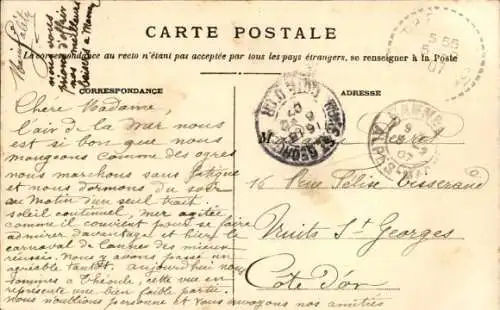 CARTE POSTALE
La correspondance au recto n'étant pas acceptée par tous les pays étrangers, se renseigner à la Poste
CORRESPONDANCE
ADRESSE
nous vous
prions d'offrir
nos meilleurs
Chère Madame,
l'air de la mer nous
est si bon que nous
mangeons comme des ogres
nous marchons sans fatigue
et nous dormons du soir
au matin d'un seul trait.
soleil continuel, mer agitée
comme il convient pour se faire
admirer davantage et hier le
carnaval de Cannes des mieux
réussis. Nous y avons passé un
agréable tantôt. aujourd'hui nous
sommes à Théoule, cette vue en
représente une bien faible partie.
nous n'oublions personne et vous envoyons nos amitiés
M
16 Rue Félix Tisserand
Nuits St Georges
Côte d'or
NUITS-ST-GEORGES
CÔTE D'OR
CANNES
ALPES-MARITIMES
07